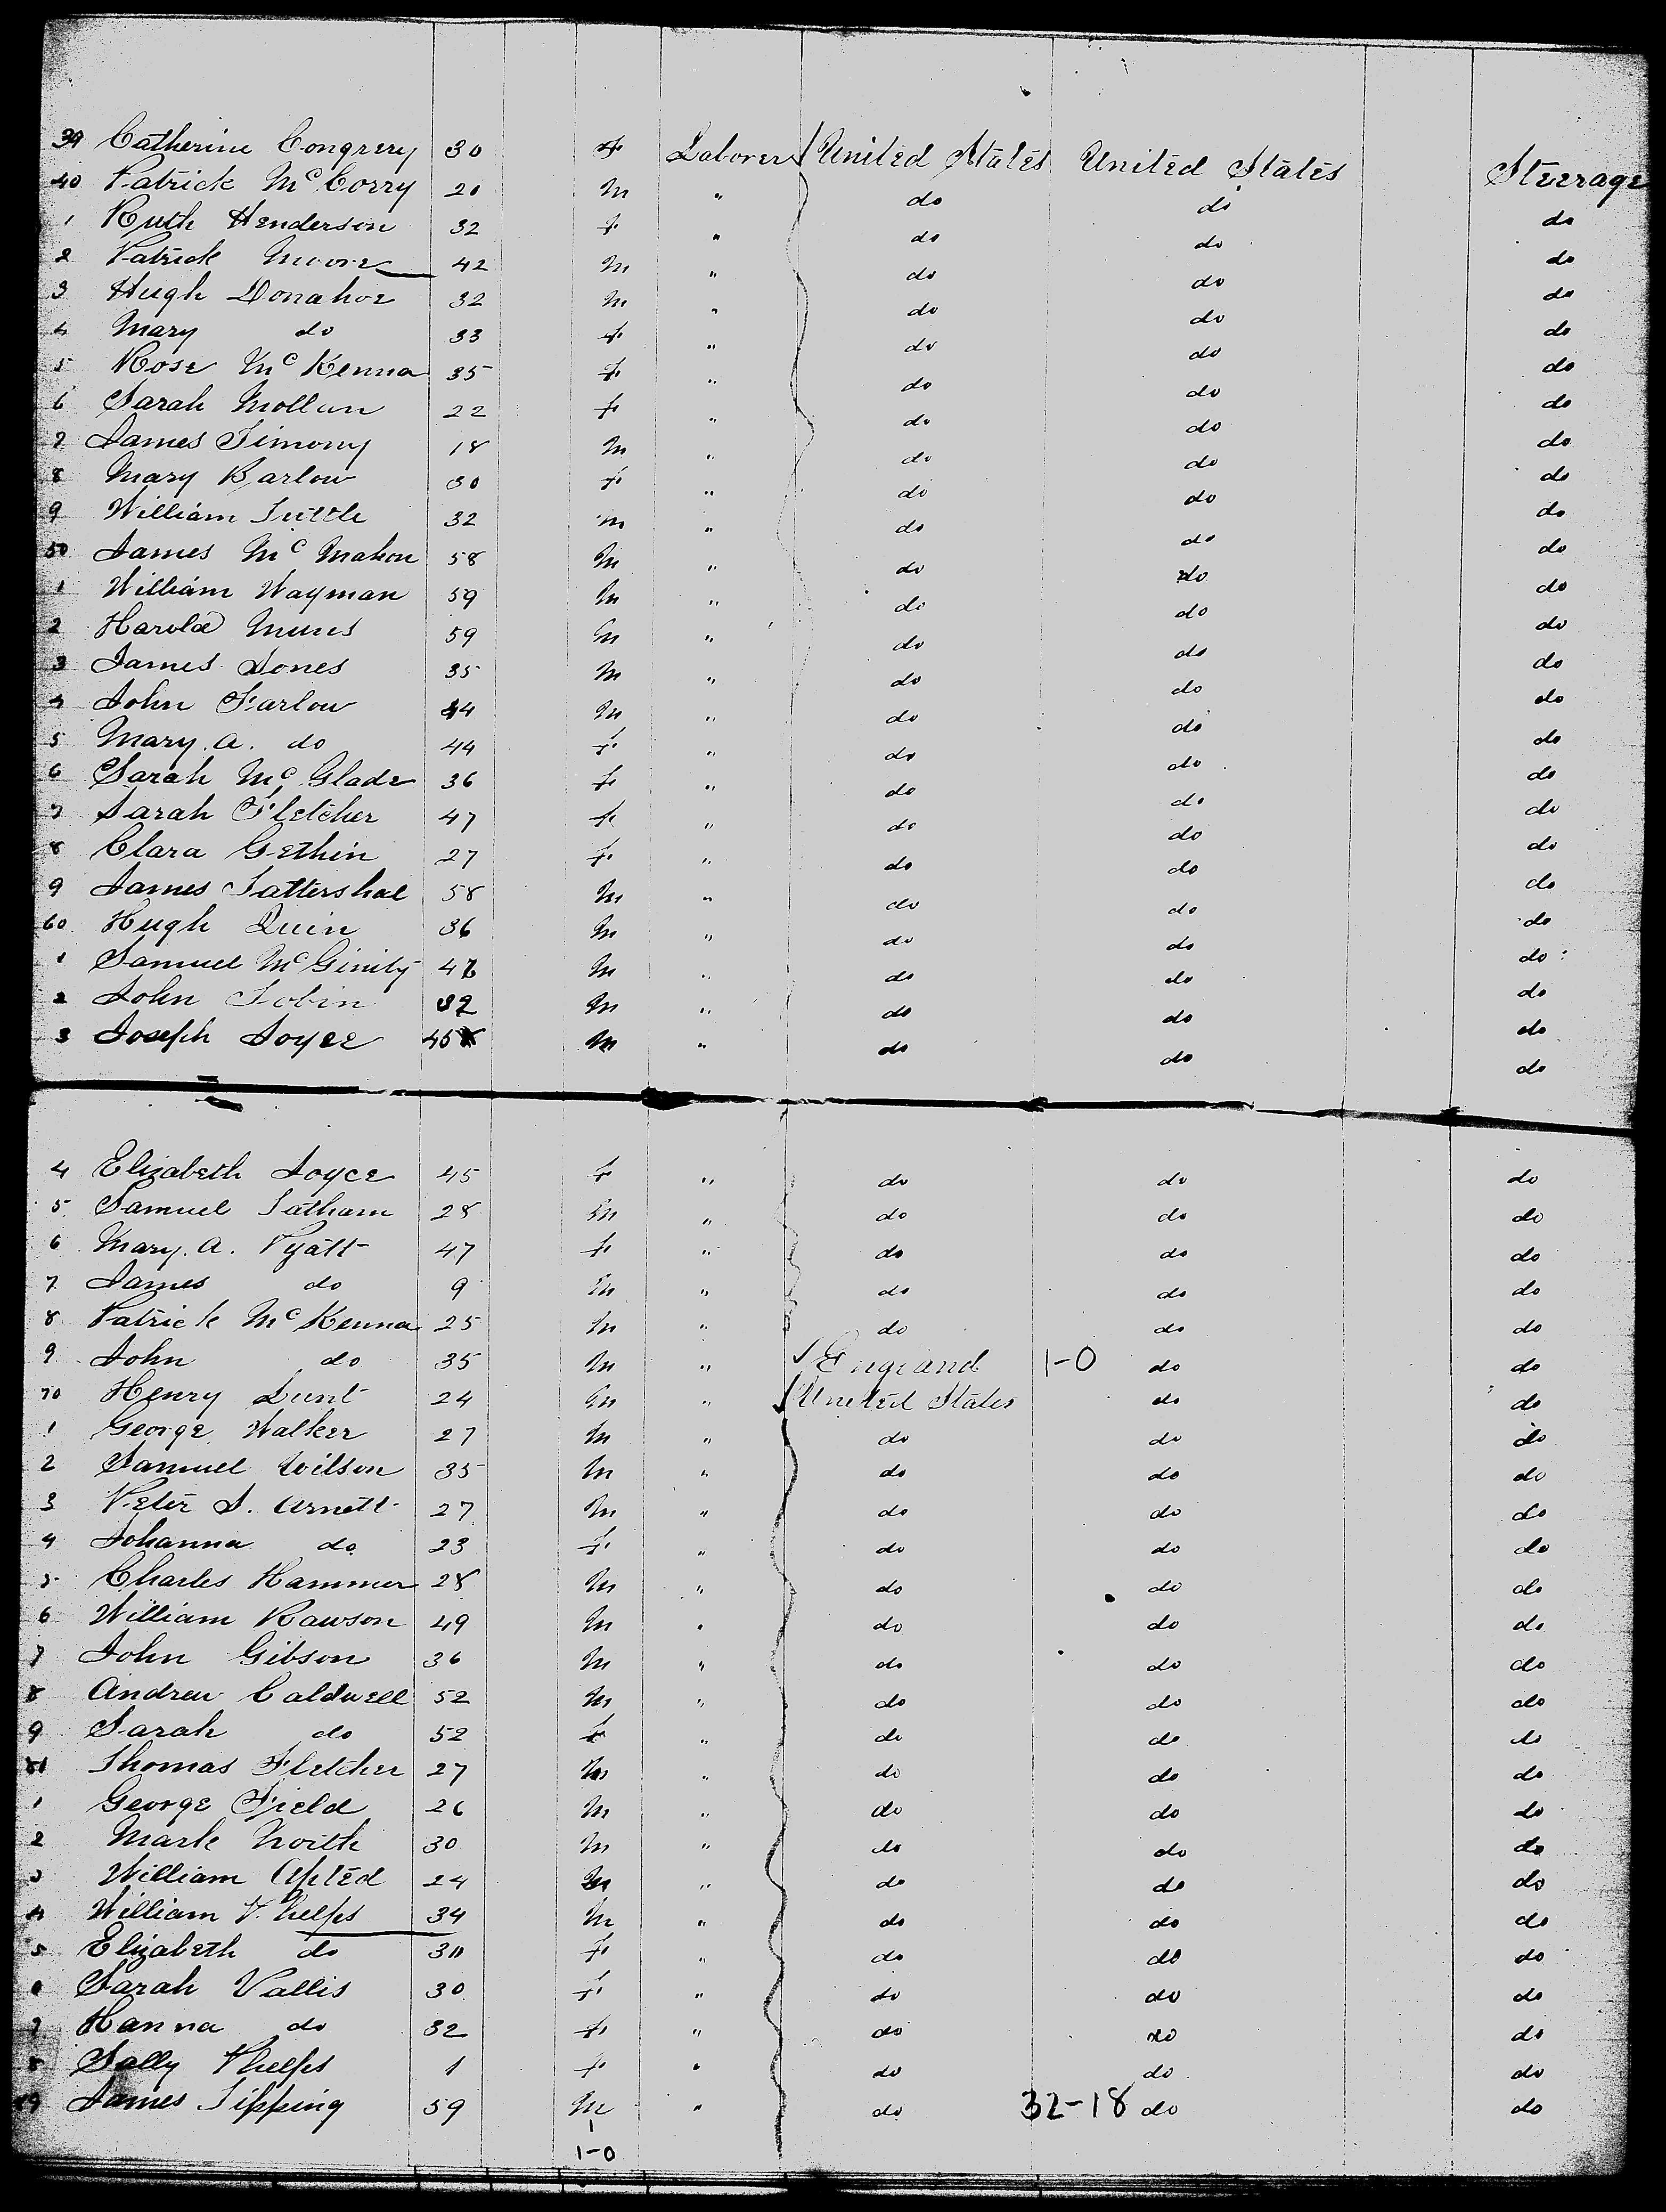 39 Catherine Congrery 30 f Laborer United States United States Steerage
40 Patrick McCorry 20 m " do do do
1 Ruth Henderson 32 f " do do do
2 Patrick Moore 42 m " do do do
3 Hugh Donahoe 32 m " do do do
4 Mary do 33 f " do do do
5 Rose McKenna 35 f " do do do
6 Sarah Mollan 22 f " do do do
7 James Timony 18 m " do do do
8 Mary Barlow 30 f " do do do
9 William Tuttle 32 m " do do do
50 James McMahon 58 m " do do do
1 William Wayman 59 m " do do do
2 Harold 59 m " do do do
3 James Jones 35 m " do do do
4 John Farlow 44 m " do do do
5 Mary. A. do 44 f " do do do
6 Sarah McGlade 36 f " do do do
7 Sarah Fletcher 47 f " do do do
8 Clara Gethin 27 f " do do do
9 James Tattershal 58 m " do do do
60 Hugh Quin 36 m " do do do
1 Samuel McGinity m " do do do
2 John Tobin 32 m " do do do
3 Joseph Joyce 45 m " do do do
4 Elizabeth Joyce 45 f " do do do
5 Samuel Tatham 28 m " do do do
6 Mary. A. Pyatt 47 f " do do do
7 James do 9 m " do do do
8 Patrick McKenna 25 m " do do do
9 John do 35 m " England 1-0 do do
70 Henry Lunt 24 m " United States do do
1 George Walker 27 m " do do do
2 Samuel Wilson 35 m " do do do
3 Peter J. Arnett 27 m " do do do
4 Johanna do 23 f " do do do
5 Charles Hammer 28 m " do do do
6 William Rawson 49 m " do do do
7 John Gibson 36 m " do do do
8 Andrew Caldwell 52 m " do do do
9 Sarah do 52 f " do do do
Thomas Fletcher 27 m " do do do
1 George Field 26 m " do do do
2 Mark North 30 m " do do do
3 William Apted 24 m " do do do
4 William Phelps 34 m " do do do
5 Elizabeth do f " do do do
6 Sarah Vallis 30 f " do do do
7 Hanna do 32 f " do do do
8 Sally Phelps 1 f " do do do
89 James Tipping 59 m " do 32-18 do do
1
1-0